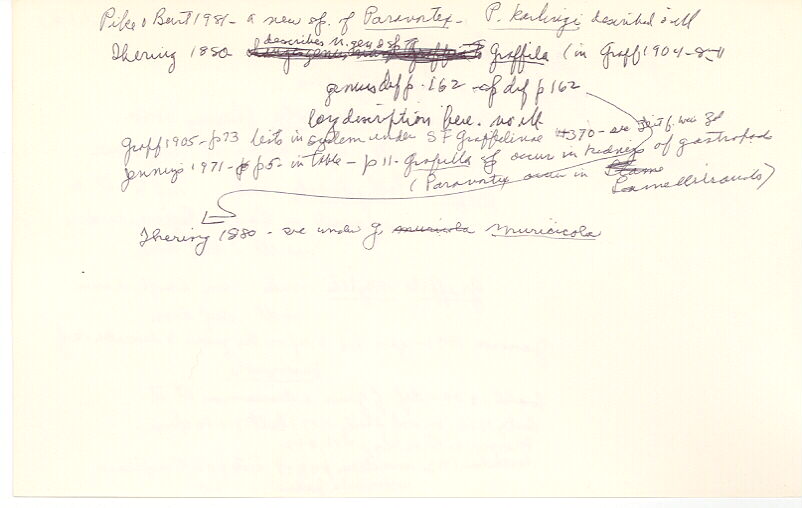 Pike & Burt 1981 - a new sp. of Paravortex - P. karlingi described & ill
describes n. gen & sp
Ihering 1880 Graffilla (in Graff 1904-8-11
genus diff p. 162 - cf def p 162
long description here. no ill
Graff 1905 - p 73 lists in system under SF Graffilinae
Jennings 1971 - p 5 - in table - p 11. Graffilla sp occur in kidneys of gastropods
(Paravortex occur in Lamellibranchs)
Ihering 1880 - see under G. muricola muricicola